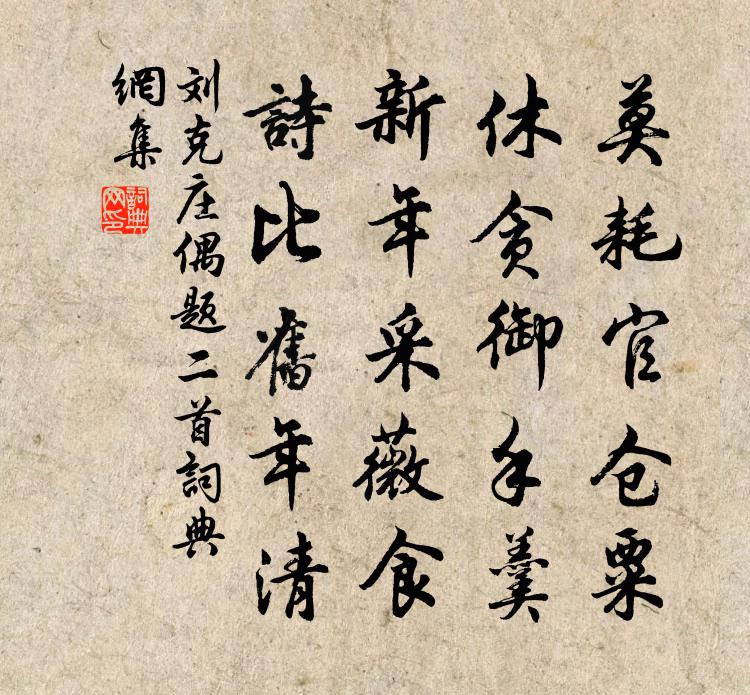 莫耗官仓粟
休贪御手羹
新年采薇食
詩比舊年清
刘克庄偶题二首詞典
網集
詞典
网印